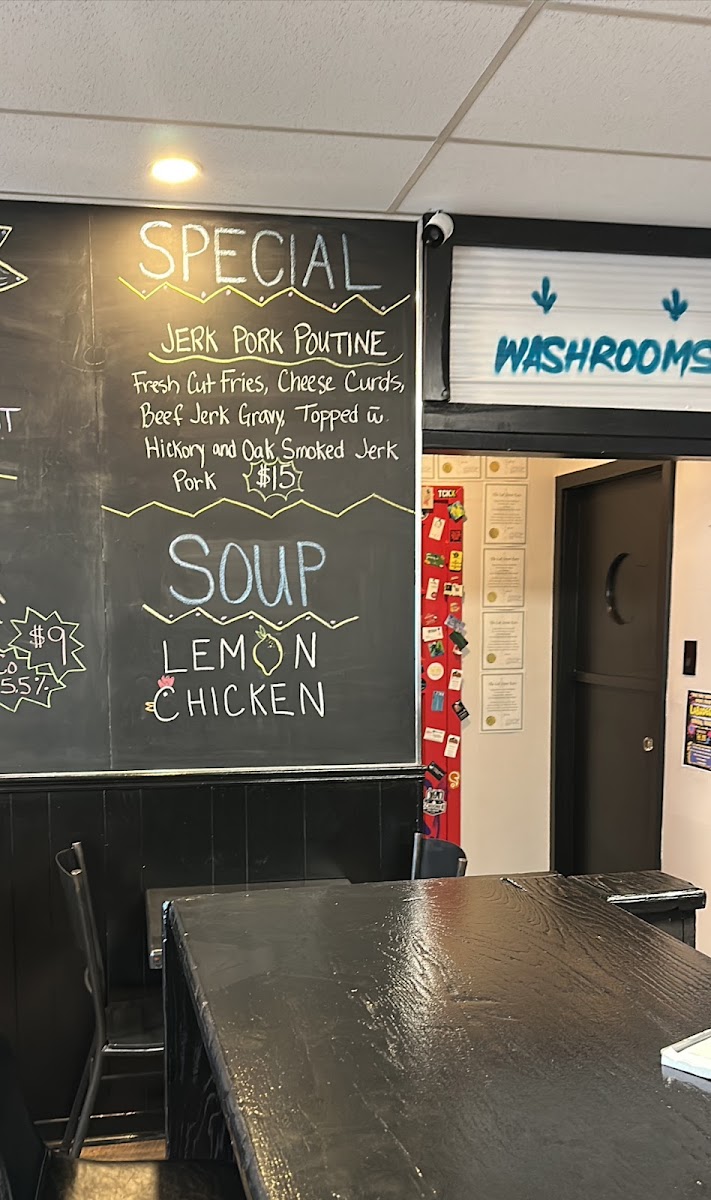 SPECIAL
JERK PORK POUTINE
Fresh Cut Fries, Cheese Curds,
Beef Jerk Gravy, Topped w̄
Hickory and Oak Smoked Jerk
Pork $15
SOUP
LEMON
CHICKEN
$9
5.5%
WASHROOMS
TCKX